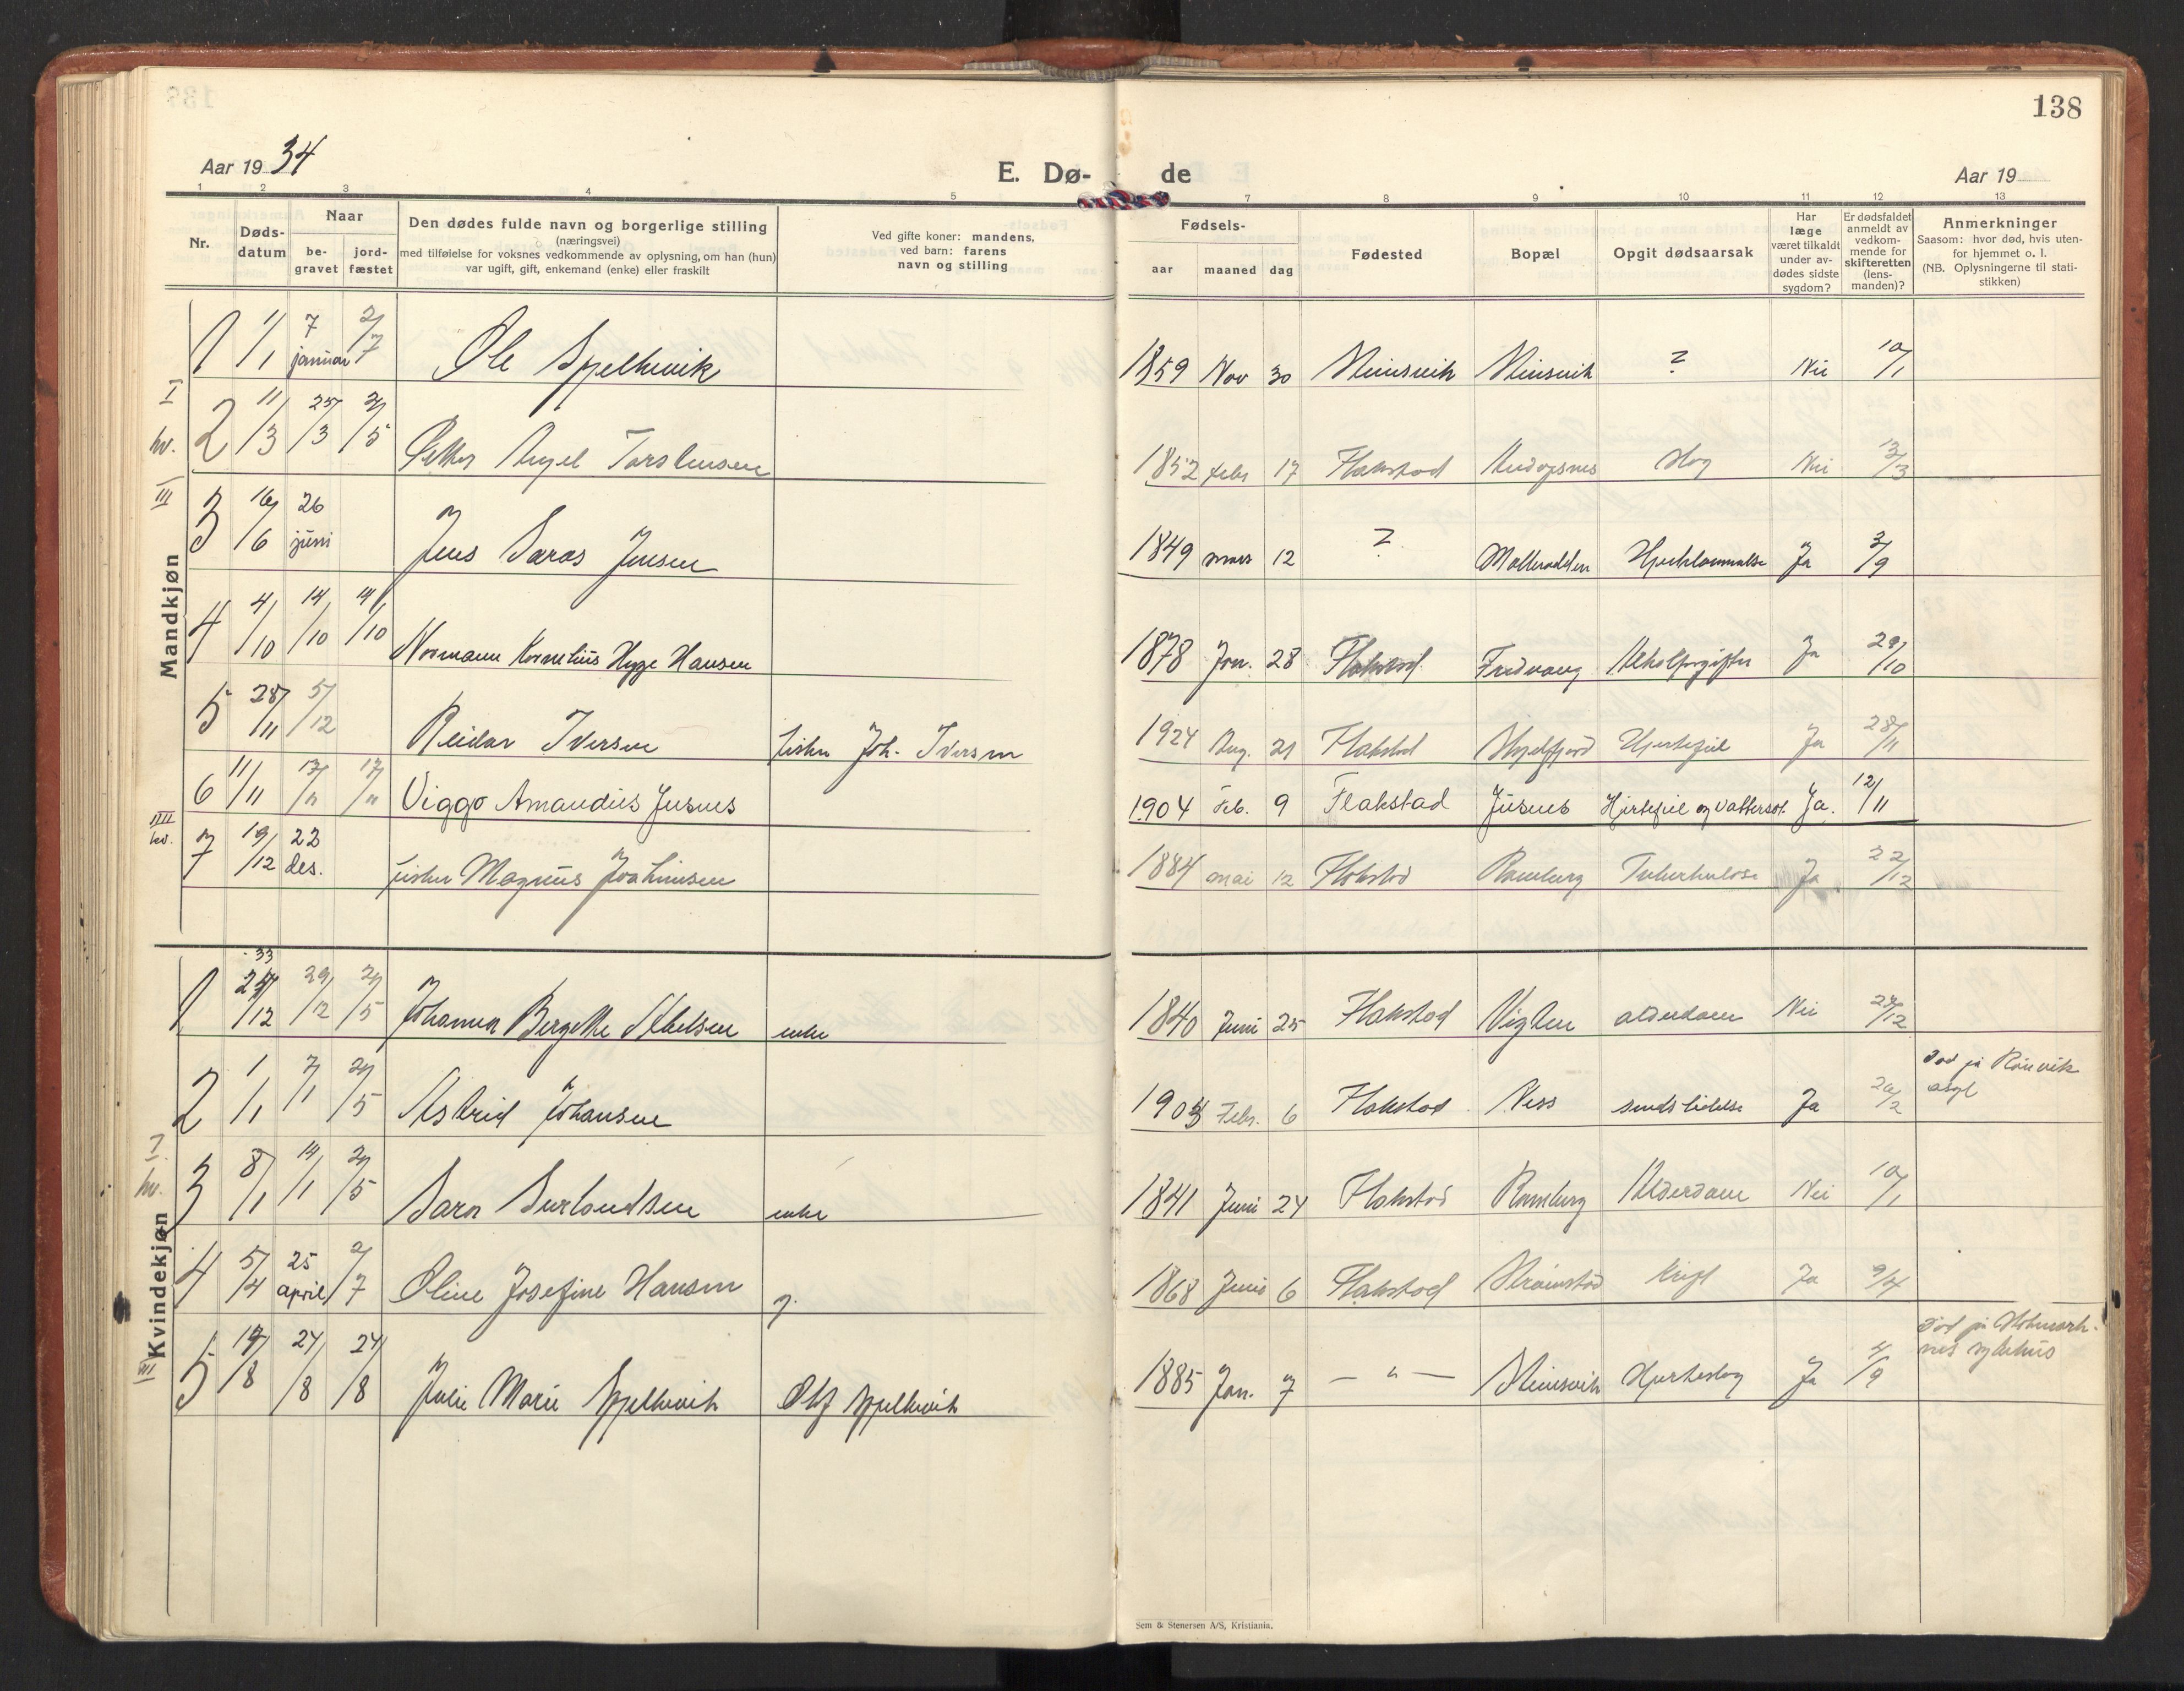 138
Aar 19 34
E. Dø- de
Aar 19
1 2 3 4 5 7 8 9 10 11 12 13
Nr.
Døds-
datum
Naar
be-
gravet
jord-
fæstet
Den dødes fulde navn og borgerlige stilling
(næringsvei)
med tilføielse for voksnes vedkommende av oplysning, om han (hun)
var ugift, gift, enkemand (enke) eller fraskilt
Ved gifte koner: mandens,
ved barn: farens
navn og stilling
Fødsels-
aar maaned dag
Fødested
Bopæl
Opgit dødsaarsak
Har
læge
været tilkaldt
under av-
dødes sidste
sygdom?
Er dødsfaldet
anmeldt av
vedkom-
mende for
skifteretten
(lens-
manden)?
Anmerkninger
Saasom: hvor død, hvis uten-
for hjemmet o. l.
(NB. Oplysningerne til stati-
stikken)
Mandkjøn
1 1/1 7 januar 2/7 Ole Spellmvik 1859 Nov 30 ? Nei 10/1
I
hv.
2 11/3 25/3 2/5 Petter Angel Torstensen 1852 Febr 17 Flakstad Slag Nei 13/3
III
3 16/6 26 juni Jens Saras Jensen 1849 mars 12 ? Hjertelammelse Ja 3/9
4 4/10 14/10 14/10 Normann Kornelius Hansen 1878 Jan. 28 Flakstad Fredvang Alkoholforgiftn Ja 29/10
5 28/11 5/12 Reidar Iversen fisker Joh. Iversen 1924 Aug. 21 Flakstad Skjelfjord Hjertefeil Ja 28/11
6 11/11 17/11 17/11 Viggo Amandius Jusnes 1904 Feb. 9 Flakstad Jusnes Hjertefeil og vattersot. Ja. 12/11
IIII
kv.
7 19/12 22 des. fisker Magnus Joakimsen 1884 mai 12 Flakstad Ramberg Tuberkulose Ja 22/12
Kvindekjøn
33
1 24/12 29/12 2/5 Johanna Bergitte Abelsen enke 1840 Juni 25 Flakstad Vigten alderdom Nei 27/12
2 1/1 7/1 2/5 Astrid Johansen 1903 Febr. 6 Flakstad Ness sindslidelse Ja 20/2 Død på Rønvik
asyl
I
hv.
3 8/1 14/1 2/5 Sara Surlandsen enke 1841 Juni 24 Flakstad Ramberg Alderdom Nei 10/1
4 5/4 25 april 2/7 Oline Josefine Hansen g. 1868 Juni 6 Flakstad Kreft Ja 9/4
III
5 17/8 24/8 24/8 Julie Marie Spellmvik 1885 Jan. 7 — " — Hjerteslag Ja 4/9 Død på Stokmark-
nes sykehus
Sem & Stenersen A/S, Kristiania.